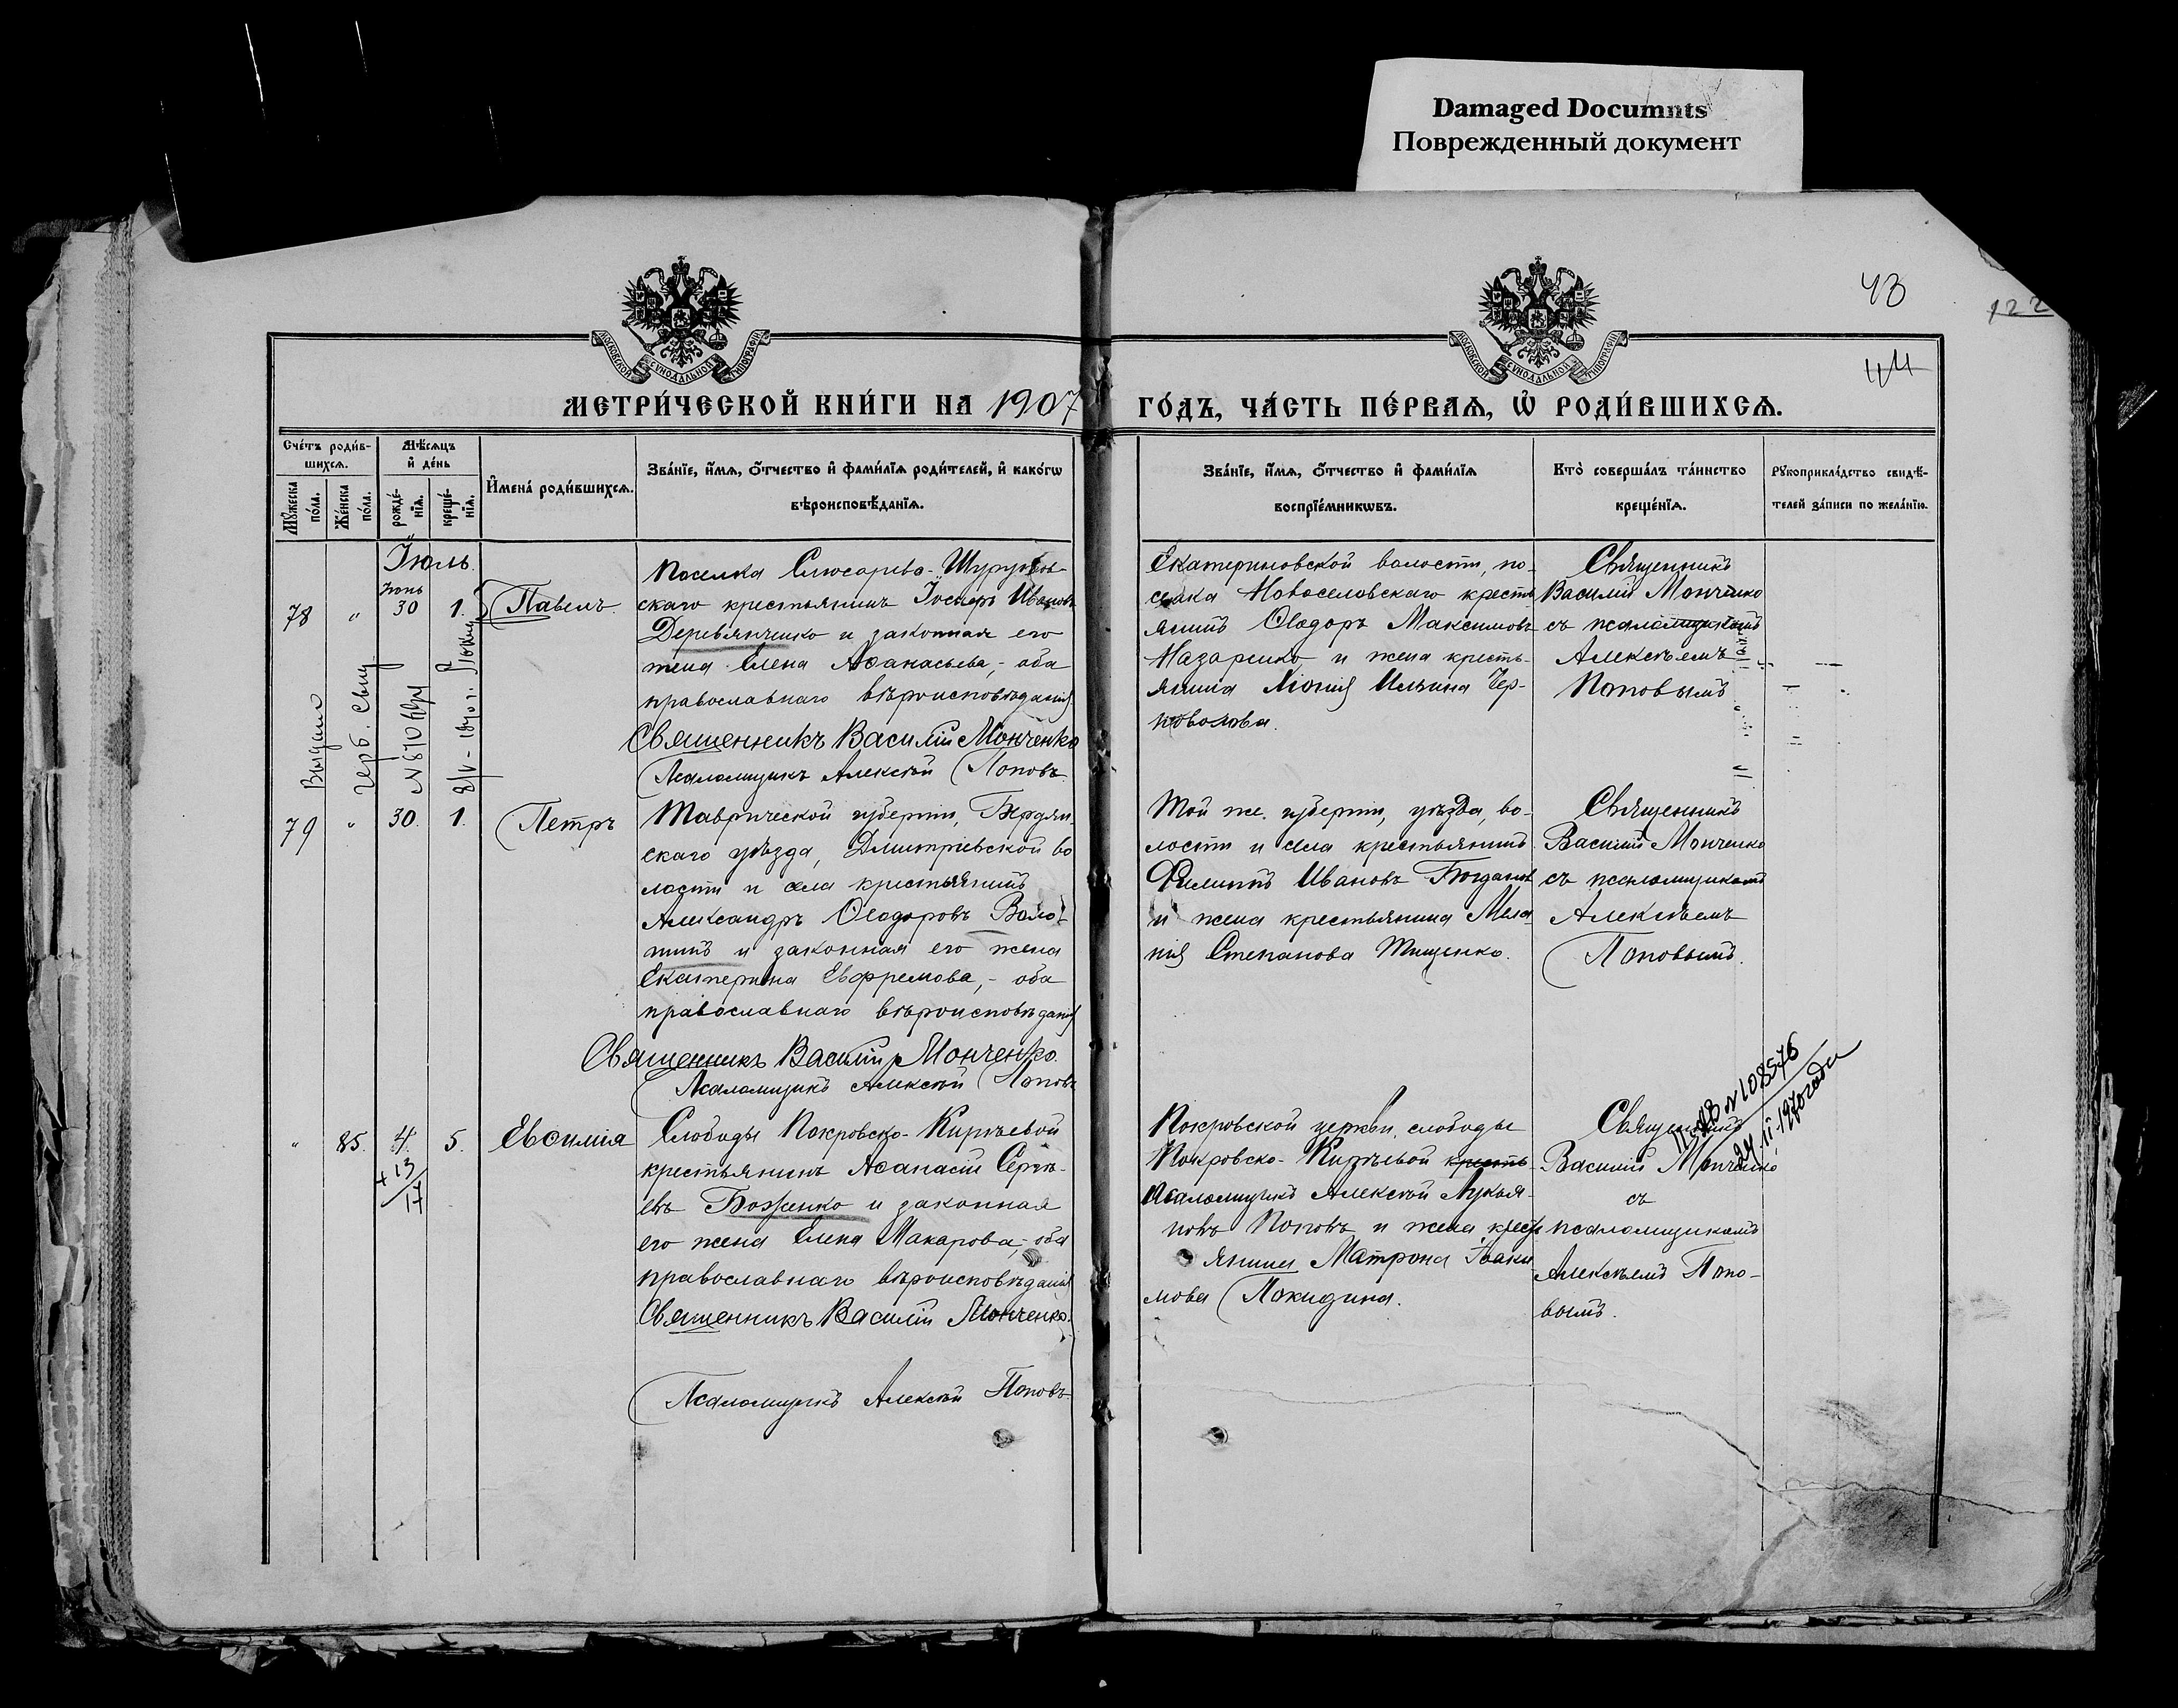 Damaged Documnts
Поврежденный документ
43
122
44
МОСКОВСКОЙ СѴНОДАЛЬНОЙ ТИПОГРАФІИ
МОСКОВСКОЙ СѴНОДАЛЬНОЙ ТИПОГРАФІИ
МЕТРИ́ЧЕСКОЙ КНИ́ГИ НА 1907 ГО́ДЪ, ЧА́СТЬ ПЕ́РВАѦ, Ѡ҆ РОДИ́ВШИХСѦ.
Сче́тъ роди́в-
шихсѧ.
Мѣ́сѧцъ
и҆ де́нь
И҆мена̀ роди́вшихсѧ.
Зва́нїе, и҆́мѧ, ѻ҆́тчество и҆ фамн́лїѧ роди́телей, и҆ како́гѡ
вѣроисповѣ́данїѧ.
Зва́нїе, и҆́мѧ, ѻ҆́тчество и҆ фами́лїѧ
воспрїе́мникѡвъ.
Кто̀ соверша́лъ та́инство
креще́нїѧ.
Рꙋкоприкла́дство свидѣ́-
телей за́писи по жела́нїю.
Мꙋ́жеска
по́ла.
Же́нска
по́ла.
рожде́-
нїѧ.
креще́-
нїѧ.
Іюль.
78 " Іюнь 30 1. Павелъ
Поселка Слюсарево-
скаго крестьянинъ Іосифъ Ивановъ
Деревянченко и законная его
жена Елена Аѳанасьева, - оба
православнаго вѣроисповѣданія
Священникъ Василій Монченко
Псаломщикъ Алексѣй Поповъ
Екатериновской волости, по-
селка Новоселовскаго кресть
янинъ Ѳеодоръ Максимовъ
Назаренко и жена кресть-
янина Ильина Чер-
Священникъ
Василій Монченко
съ псаломщикомъ
Алексѣемъ
Поповымъ
79 " 30. 1. Петръ
Таврической губерніи, Бердян
скаго уѣзда, Дмитріевской во
лости и села крестьянинъ
Александръ Ѳеодоровъ
и законная его жена
Екатерина Евфремова, - оба
православнаго вѣроисповѣданія
Священникъ Василій Монченко.
Псаломщикъ Алексѣй Поповъ
Той же губерніи, уѣзда, во-
лости и села крестьянинъ
Филиппъ Ивановъ Богданов
и жена крестьянина Мела
нія Степанова Тищенко.
Священникъ
Василій Монченко
съ псаломщикомъ
Алексѣемъ
Поповымъ.
" 85. 4. 5. Евѳимія
+13
17
Слободы Покровско-Кирѣевой
крестьянинъ Аѳанасій Сергѣ-
евъ Боженко и законная
его жена Елена Макарова, - оба
православнаго вѣроисповѣданія
Священникъ Василій Монченко.
Псаломщикъ Алексѣй Поповъ
Покровской церкви, слободы
Покровско-Кирѣевой кресть-
Псаломщикъ Алексѣй Лукья-
новъ Поповъ и жена крест
янина Матрона Іоаки
мова Покидина.
Священникъ
Василій Монченко
съ
псаломщикомъ
Алексѣемъ Попо-
вымъ.
№ 108576
24.II.1970 года